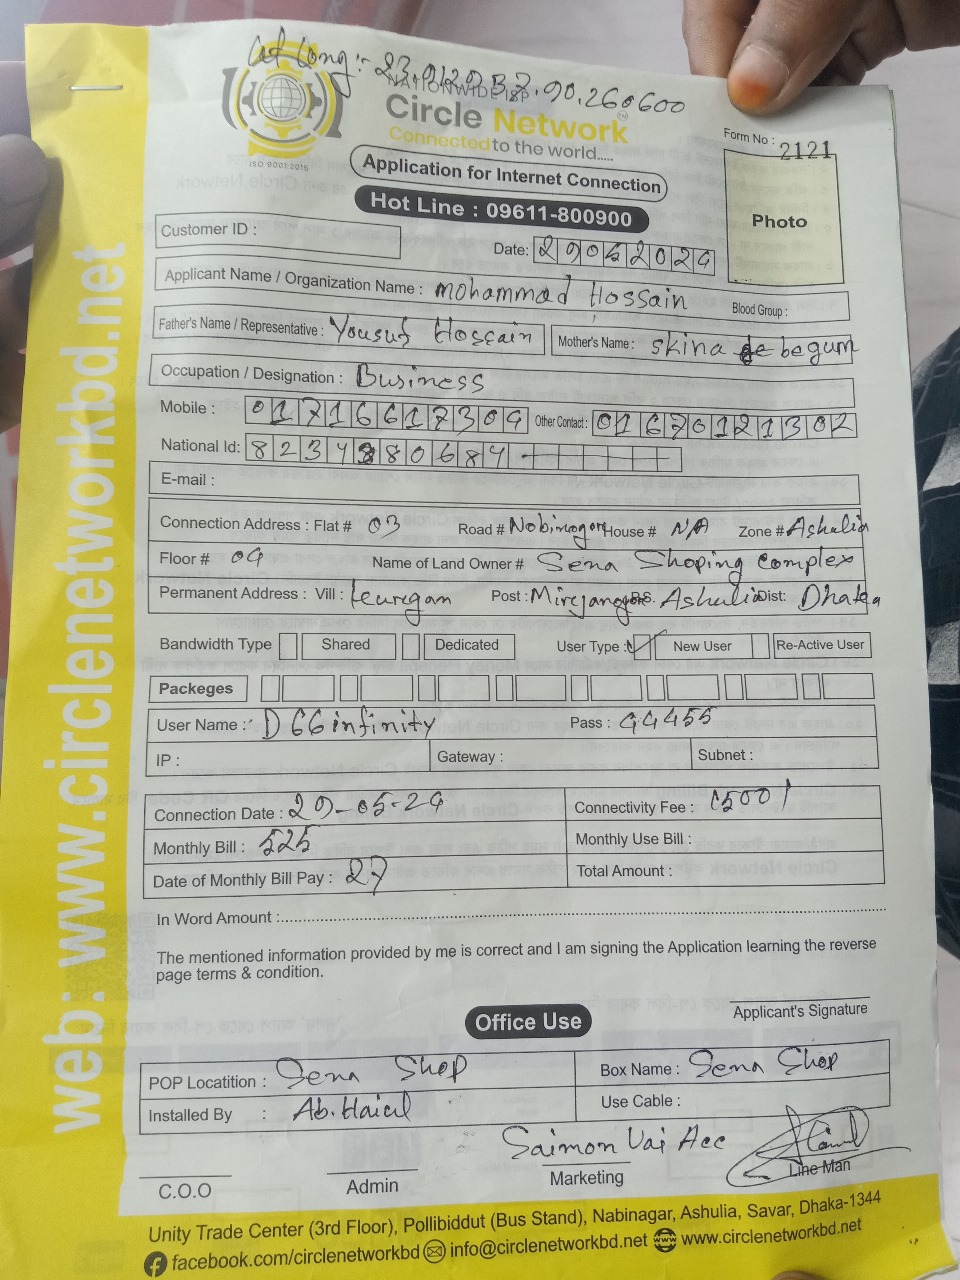 Lat Long:- 23.9129
90.260600
NATIONWIDE ISP
Circle Network
Connected to the world.....
ISO 9001:2015
Application for Internet Connection
Hot Line : 09611-800900
Form No : 2121
Photo
Customer ID :
Date: 29052024
Applicant Name / Organization Name : mohammad Hossain Blood Group :
Father's Name / Representative : Yousuf Hossain Mother's Name : skina begum
Occupation / Designation : Business
Mobile : 01716617304 Other Contact : 01670121302
National Id: 8234380684
E-mail :
Connection Address : Flat # 03 Road # House # N/A Zone # Ashulia
Floor # 04 Name of Land Owner # Sena Shoping Complex
Permanent Address : Vill : Post : P.S. Ashulia Dist: Dhaka
Bandwidth Type Shared Dedicated User Type : New User Re-Active User
Packeges
User Name : D66infinity Pass : 44455
IP : Gateway : Subnet :
Connection Date : 29-05-24 Connectivity Fee : 1500/
Monthly Bill : 525 Monthly Use Bill :
Date of Monthly Bill Pay : 27 Total Amount :
In Word Amount :
The mentioned information provided by me is correct and I am signing the Application learning the reverse
page terms & condition.
Applicant's Signature
Office Use
POP Locatition : Sena Shop Box Name : Sena Shop
Installed By : Ab. Use Cable :
Saimon Vai Acc
C.O.O Admin Marketing Line Man
Unity Trade Center (3rd Floor), Pollibiddut (Bus Stand), Nabinagar, Ashulia, Savar, Dhaka-1344
facebook.com/circlenetworkbd info@circlenetworkbd.net www.circlenetworkbd.net
web: www.circlenetworkbd.net